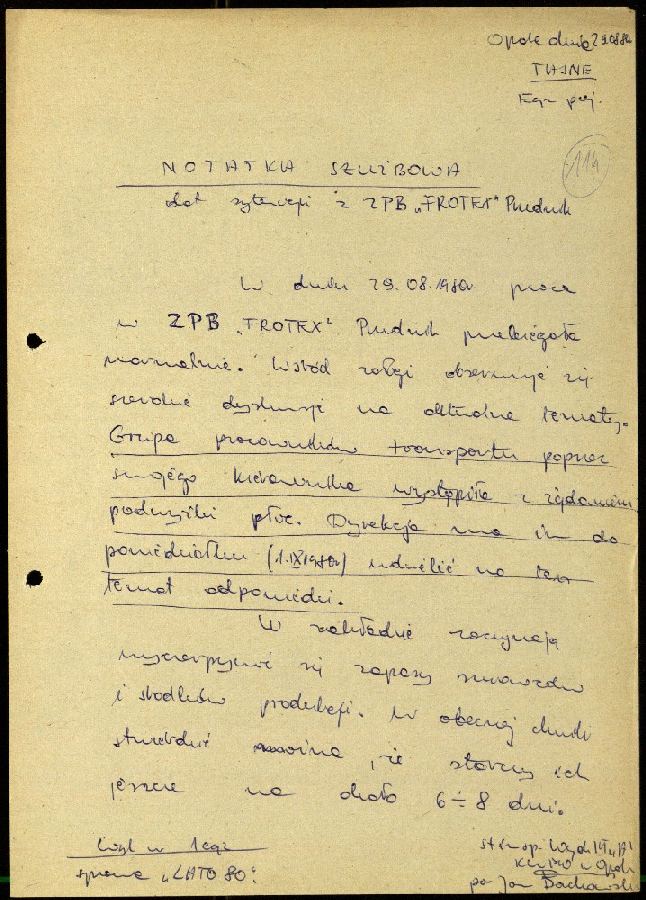 Opole dnia 29.08.80
TAJNE
Egz. poj.
114
NOTATKA SZUŻBOWA
dot. sytuacji z ZPB „FROTEX" Prudnik
W dniu 29.08.1980r praca
w ZPB „FROTEX" Prudnik przebiegała
normalnie. Wśród załogi obserwuje się
szerokie dyskusje na aktualne tematy.
Grupa pracowników transportu poprzez
swojego kierownika wystąpiła z żądaniem
podwyżki płac. Dyrekcja ma im do
poniedziałku (1.IX.1980r) udzielić na ten
temat odpowiedzi.
W zakładzie zaczynają
wyczerpywać się zapasy surowców
i środków produkcji. W obecnej chwili
stwierdzić można, że starczy ich
jeszcze na około 6÷8 dni.
w
sprawa „LATO 80".
st. insp. Wydz. III „A"
KWMO w Opolu
Jan